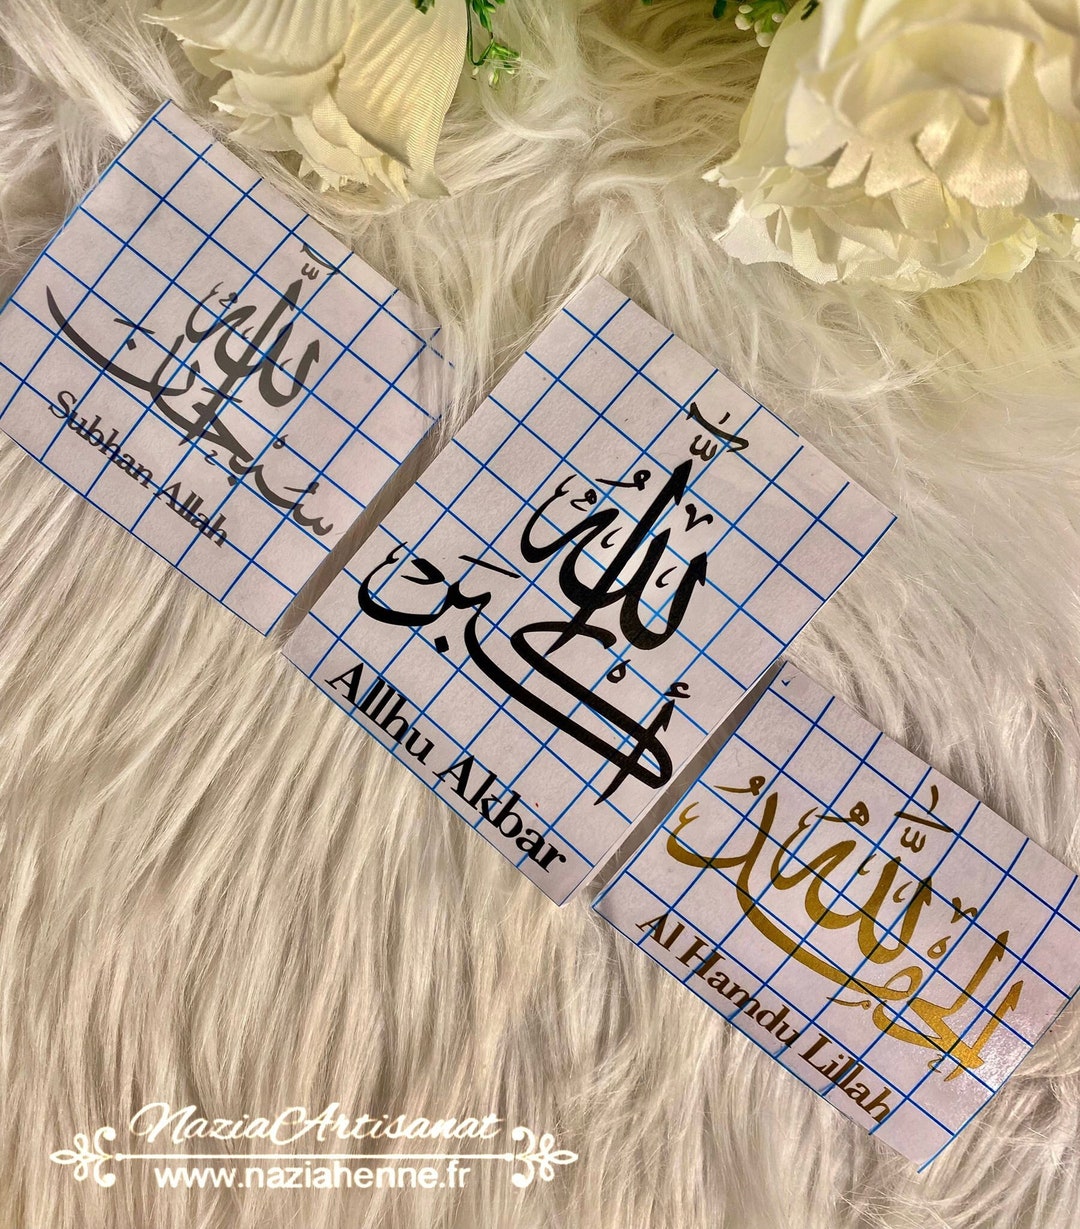 سُبْحَانَ اللّٰه
Subhan Allah
اللّٰهُ أَكْبَر
Allhu Akbar
الحَمْدُ لِلّٰه
Al Hamdu Lillah
NaziaArtisanat
www.naziahenne.fr